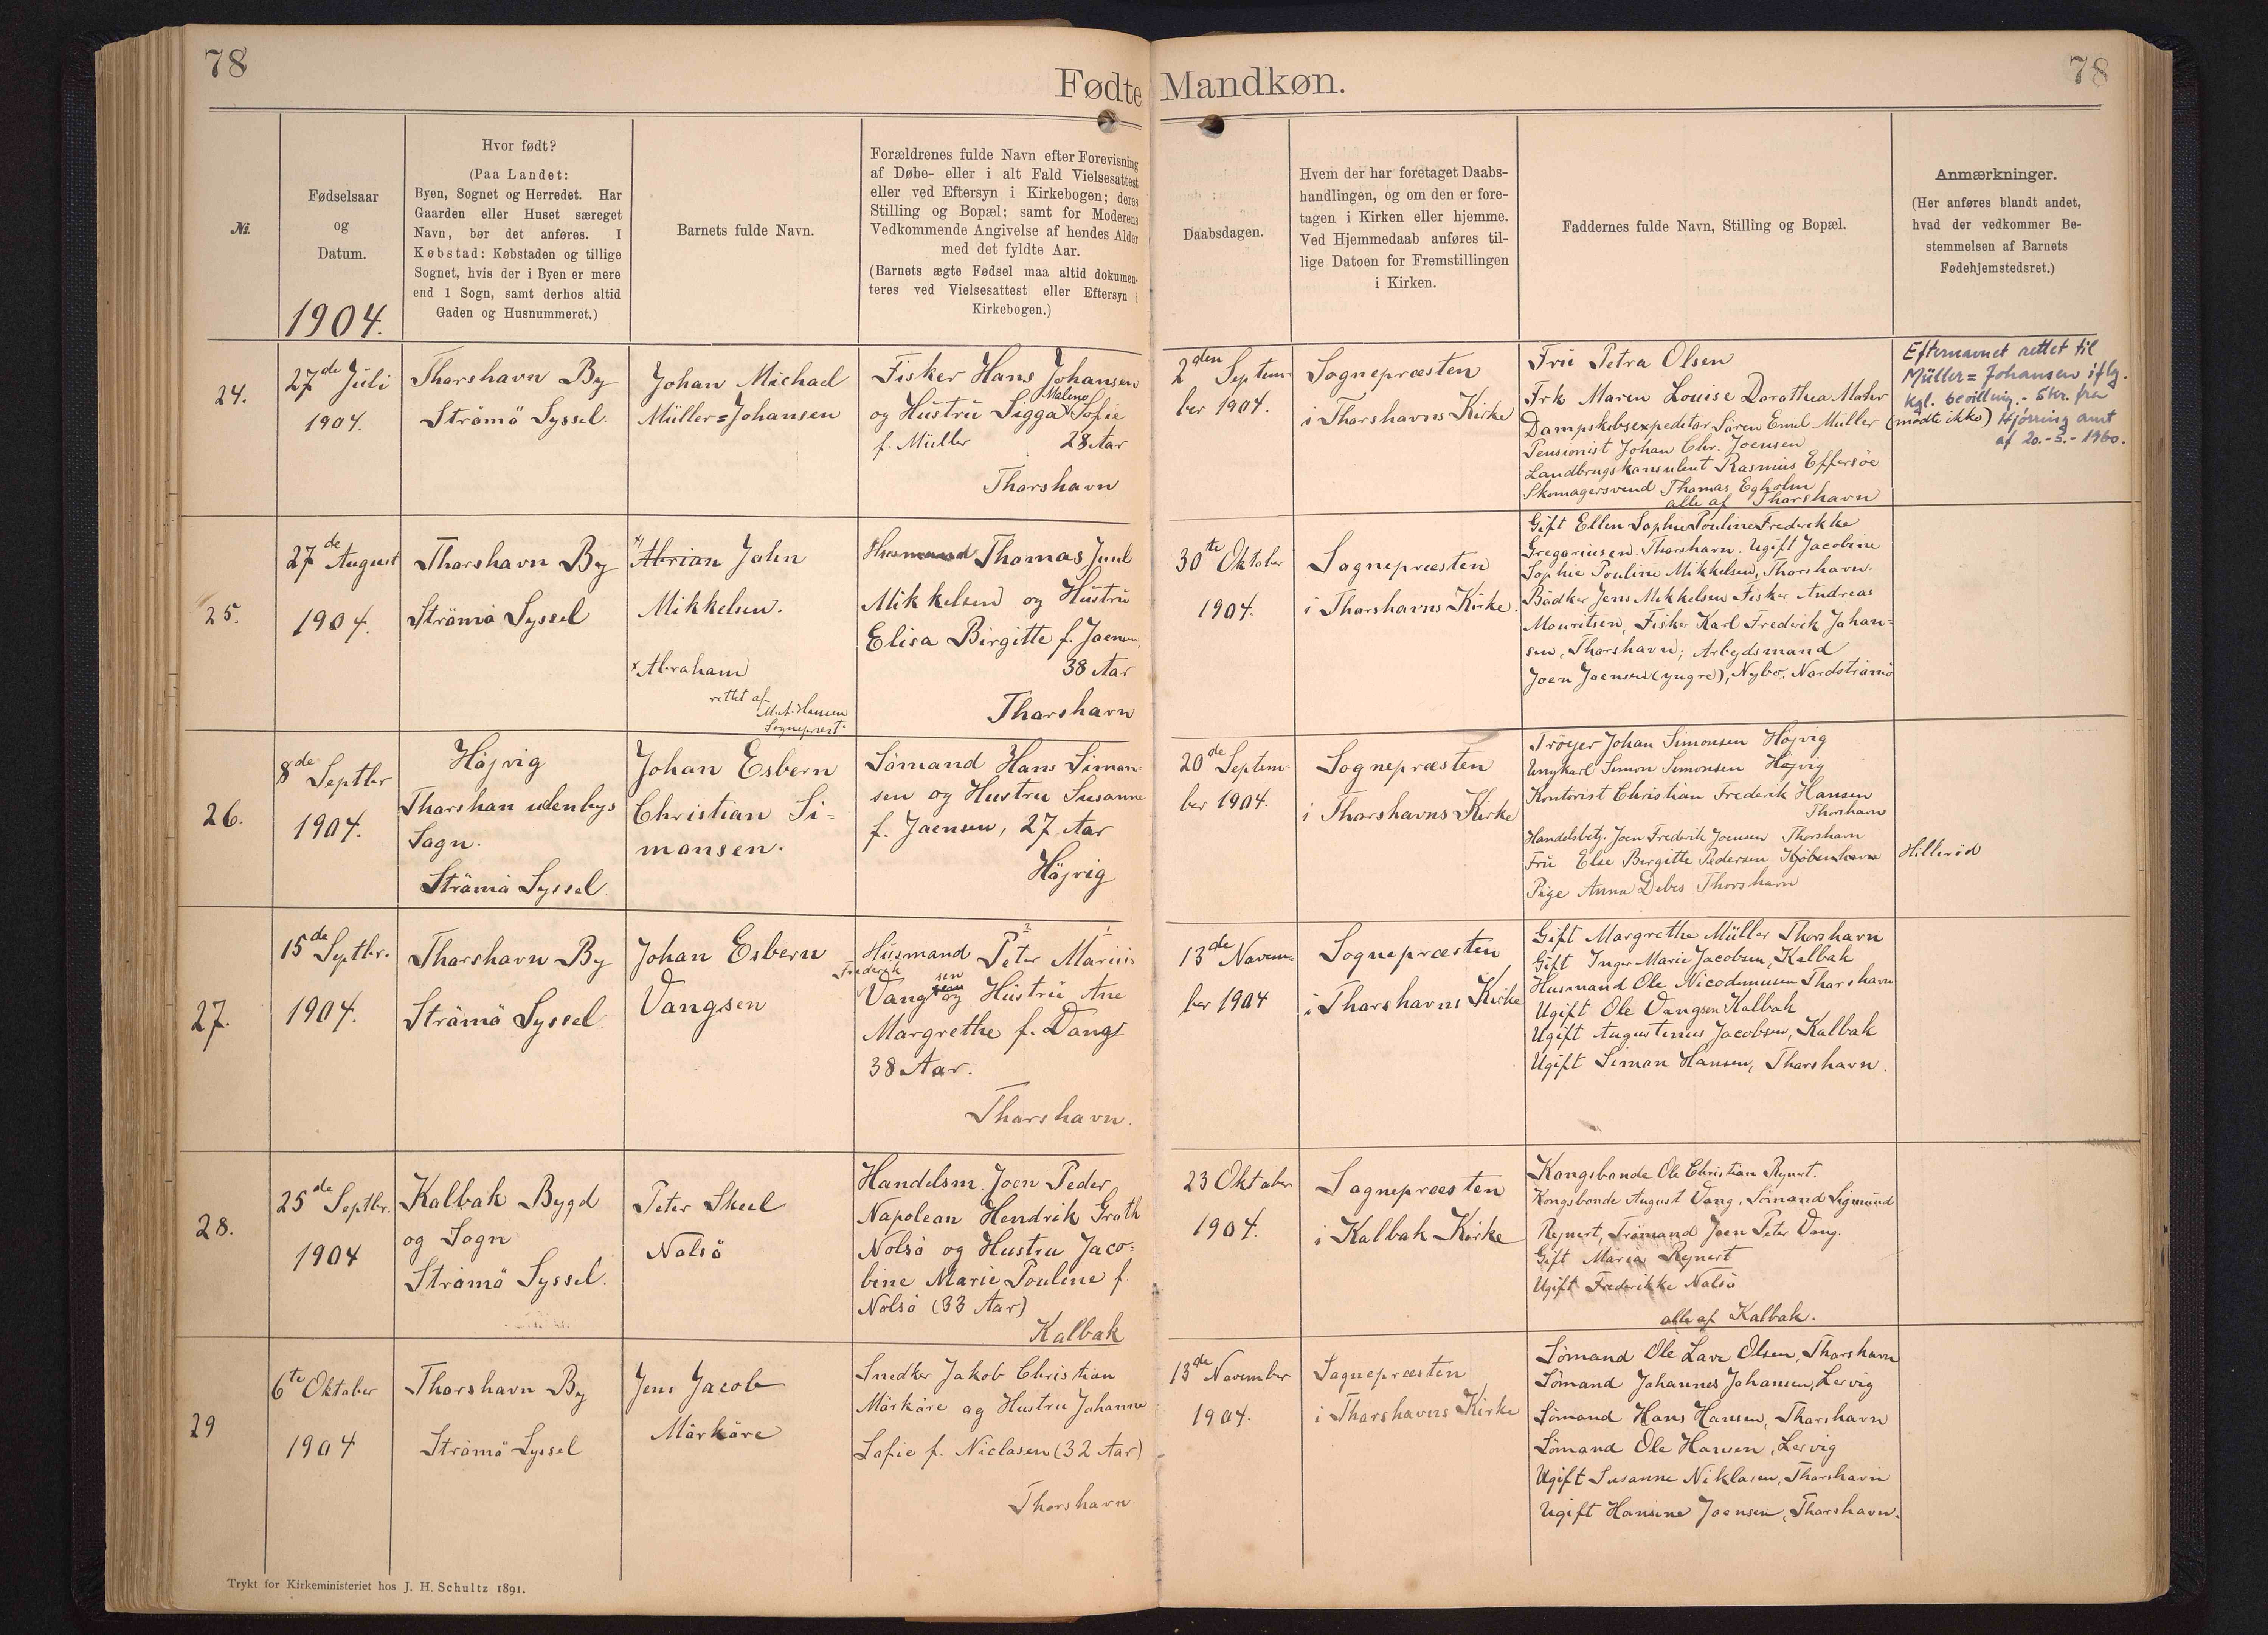 78
Fødte Mandkøn.
78
№.
Fødselsaar
og
Datum.
1904.
Hvor født?
(Paa Landet:
Byen, Sognet og Herredet. Har
Gaarden eller Huset særeget
Navn, bør det anføres. I
Købstad: Købstaden og tillige
Sognet, hvis der i Byen er mere
end 1 Sogn, samt derhos altid
Gaden og Husnummeret.)
Barnets fulde Navn.
Forældrenes fulde Navn efter Forevisning
af Døbe- eller i alt Fald Vielsesattest
eller ved Eftersyn i Kirkebogen; deres
Stilling og Bopæl; samt for Moderens
Vedkommende Angivelse af hendes Alder
med det fyldte Aar.
(Barnets ægte Fødsel maa altid dokumen-
teres ved Vielsesattest eller Eftersyn i
Kirkebogen.)
Daabsdagen.
Hvem der har foretaget Daabs-
handlingen, og om den er fore-
tagen i Kirken eller hjemme.
Ved Hjemmedaab anføres til-
lige Datoen for Fremstillingen
i Kirken.
Faddernes fulde Navn, Stilling og Bopæl.
Anmærkninger.
(Her anføres blandt andet,
hvad der vedkommer Be-
stemmelsen af Barnets
Fødehjemstedsret.)
24.
27de Juli
1904.
Thorshavn By
Strömö Syssel
Johan Michael
Müller=Johansen
Fisker Hans Johansen
Malene
og Hustru Sigga Sofie
f. Müller 28 Aar
Thorshavn
2den Septem-
ber 1904.
Sognepræsten
i Thorshavns Kirke
Fru Petra Olsen
Frk Maren Louise Dorothea Mohr
Dampskibsexpeditör Sören Emil Müller (mødte ikke)
Pensionist Johan Chr. Joensen
Landbrugskonsulent Rasmus Effersöe
Skomagersvend Thomas Egholm
alle af Thorshavn
Efternavnet rettet til
Müller=Johansen iflg.
kgl. bevilling.- 5kr. fra
Hjørring amt
af 20.-5.-1960.
25.
27de August
1904.
Thorshavn By
Strömö Syssel
x) Abrian John
Mikkelsen.
x Abraham
rettet af
Sognepræst.
Husmand Thomas Juul
Mikkelsen og Hustru
Elisa Birgitte f. Joensen,
38 Aar
Thorshavn
30te Oktober
1904.
Sognepræsten
i Thorshavns Kirke.
Gift Ellen Sophie Pouline Frederikke
Gregoriusen Thorshavn. Ugift Jacobine
Sophie Pouline Mikkelsen, Thorshavn.
Bödker Jens Mikkelsen Fisker Andreas
Mouritsen, Fisker Karl Frederik Johan-
sen, Thorshavn; Arbejdsmand
Joen Joensen (yngre), Nybo, Nordströmö
26.
8de Septbr
1904.
Höjvig
Thorshan udenbys
Sogn.
Strömö Syssel
Johan Esbern
Christian Si-
monsen.
Sömand Hans Simon-
sen og Hustru Susanne
f. Joensen, 27 Aar
Höjvig
20de Septem-
ber 1904.
Sognepræsten
i Thorshavns Kirke
Tröyer Johan Simonsen Höjvig
Ungkarl Simon Simonsen Höjvig
Kontorist Christian Frederik Hansen
Thorshavn
Handelsbetj. Joen Frederik Joensen Thorshavn
Fru Else Birgitte Pedersen Kjöbenhavn Hilleröd
Pige Anna Debes Thorshavn
27.
15de Septbr.
1904.
Thorshavn By
Strömö Syssel
Johan Esbern
Vangsen
Husmand Peter Marius
Frederik sen
Vang og Hustru Ane
Margrethe f. Vang
38 Aar.
Thorshavn.
13de Novem-
ber 1904
Sognepræsten
i Thorshavns Kirke
Gift Margrethe Müller Thorshavn
Gift Inger Marie Jacobsen, Kalbak
Husmand Ole Nicodemusen Thorshavn
Ugift Ole Vangsen Kalbak
Ugift Augustinus Jacobsen, Kalbak
Ugift Simon Hansen, Thorshavn.
28.
25de Septbr.
1904
Kalbak Bygd
og Sogn
Strömö Syssel.
Peter Skeel
Nolsö
Handelsm. Joen Peder
Napoleon Hendrik Groth
Nolsö og Hustru Jaco-
bine Marie Pouline f.
Nolsö (33 Aar)
Kalbak
23 Oktober
1904.
Sognepræsten
i Kalbak Kirke
Kongsbonde Ole Christian Reynert.
Kongsbonde August Vang, Sömand Sigmund
Reynert, Sömand Joen Peter Vang.
Gift Maria Reynert
Ugift Frederikke Nolsö
alle af Kalbak.
29
6te Oktober
1904
Thorshavn By
Strömö Syssel
Jens Jacob
Mörköre
Snedker Jakob Christian
Mörköre og Hustru Johanne
Sofie f. Niclasen (32 Aar)
Thorshavn.
13de November
1904.
Sognepræsten
i Thorshavns Kirke
Sömand Ole Lave Olsen, Thorshavn
Sömand Johannes Johansen, Lervig
Sömand Hans Hansen, Thorshavn
Sömand Ole Hansen, Lervig
Ugift Susanne Niklasen, Thorshavn
Ugift Hansine Joensen, Thorshavn.
Trykt for Kirkeministeriet hos J. H. Schultz 1891.